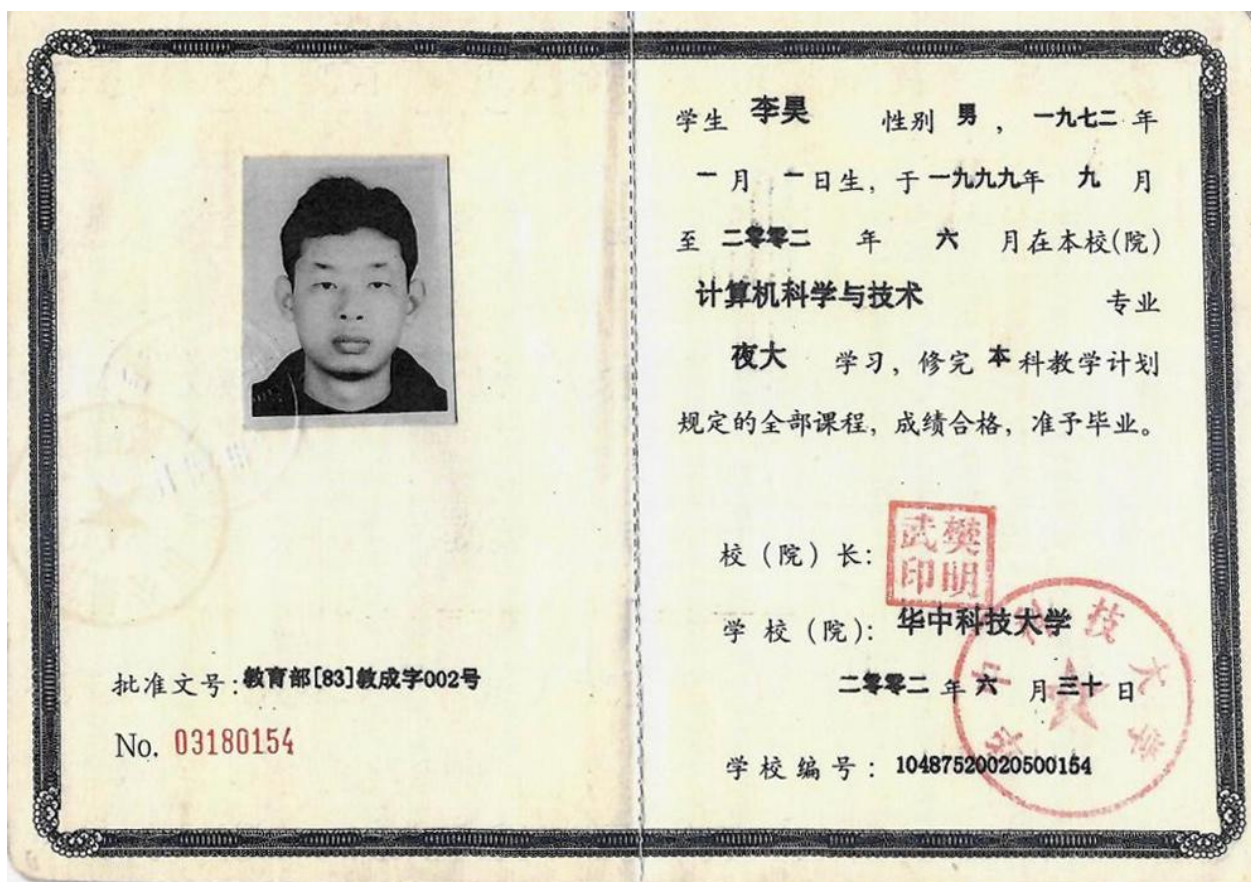 批准文号:教育部[83]教成字002号
No. 03180154
学生 李昊 性别 男 , 一九七二 年
一 月 一 日生, 于 一九九九年 九 月
至 二零零二 年 六 月在本校(院)
计算机科学与技术 专业
夜大 学习, 修完 本 科教学计划
规定的全部课程, 成绩合格, 准予毕业。
校 (院) 长:
武樊
印明
学 校 (院): 华中科技大学
二零零二 年 六 月 三十 日
学 校 编 号 : 10487520020500154
华中科技大学